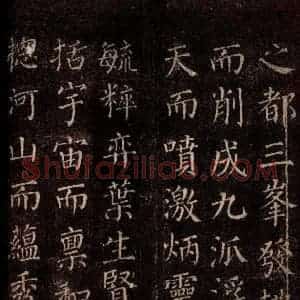 之都三峯發
而削成九派浮
天而噴激炳靈
毓粹弈葉生賢
括宇宙而禀和
總河山而蘊秀
Shufaziliao.com